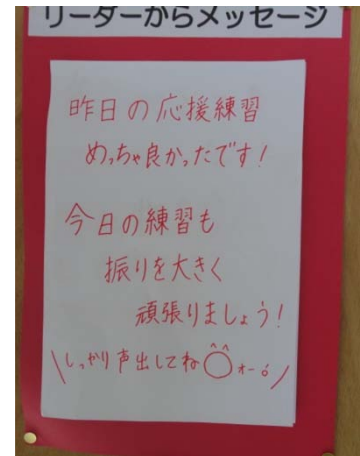 リーダーからメッセージ
昨日の応援練習
めっちゃ良かったです!
今日の練習も
振りを大きく
頑張りましょう!
\しっかり声出してね オー!/